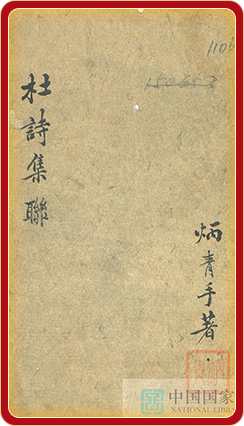 杜詩集聯
炳青手著
中国国家
NATIONAL LIBR